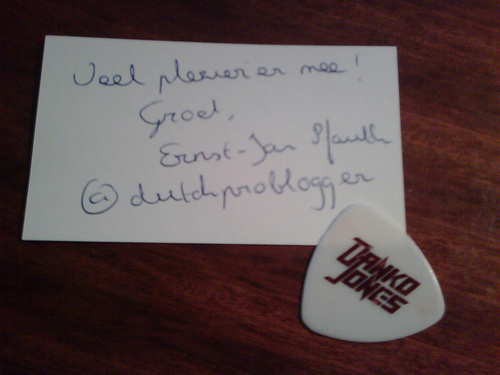 Veel plezier er mee!
Groet,
Ernst-Jan Pfauth
@dutchproblogger
DANKO
JONES